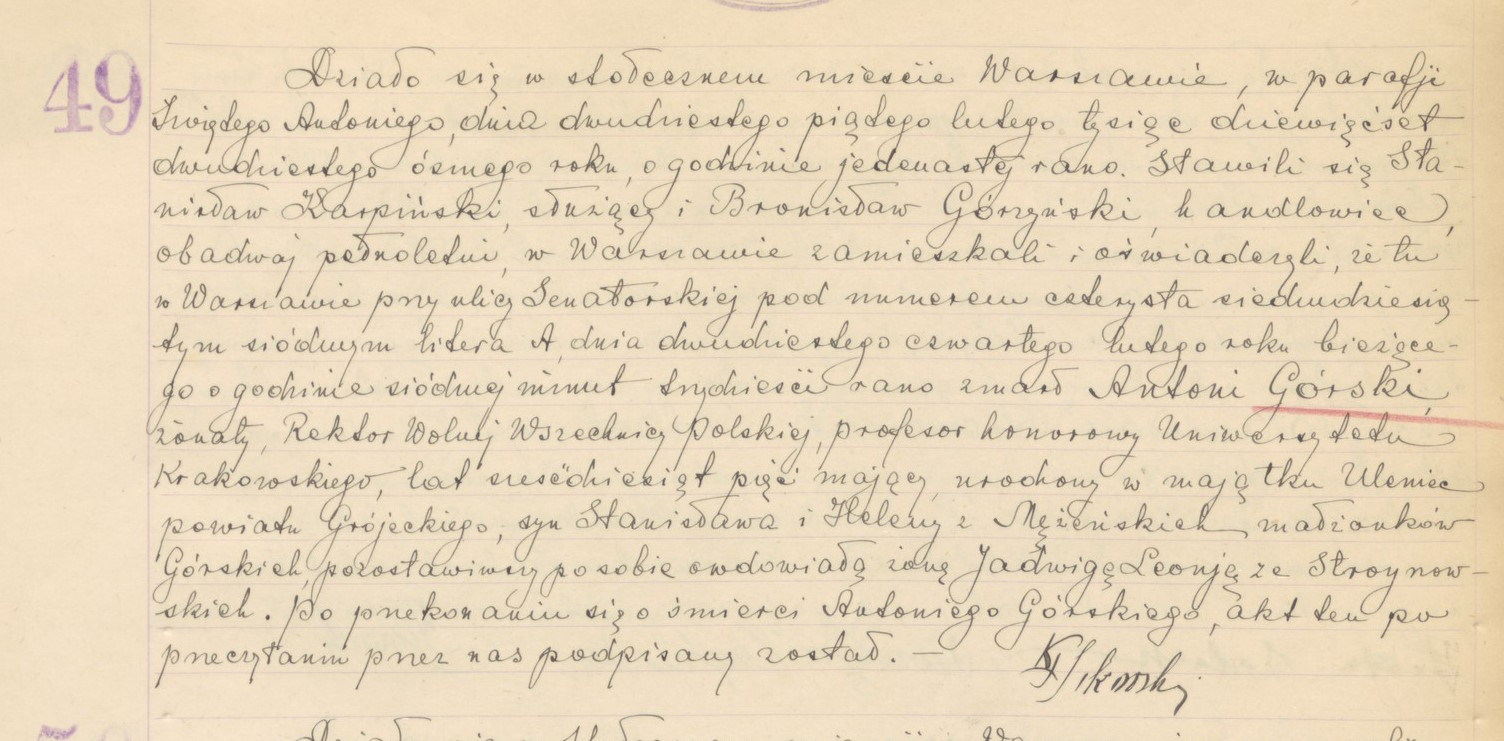 49
Działo się w stołecznem mieście Warszawie, w parafji
Świętego Antoniego, dnia dwudziestego piątego lutego tysiąc dziewięćset
dwudziestego ósmego roku, o godzinie jedenastej rano. Stawili się Sta-
nisław Karpiński, służący i Bronisław Górzyński, handlowiec,
obadwaj pełnoletni, w Warszawie zamieszkali i oświadczyli, że tu
w Warszawie przy ulicy Senatorskiej pod numerem czterysta siedmdziesią-
tym siódmym litera A, dnia dwudziestego czwartego lutego roku bieżące-
go o godzinie siódmej minut trzydzieści rano zmarł Antoni Górski,
żonaty, Rektor Wolnej Wszechnicy Polskiej, profesor honorowy Uniwersytetu
Krakowskiego, lat sześćdziesiąt pięć mający, urodzony w majątku Uleniec
powiatu Grójeckiego, syn Stanisława i Heleny z Mężeńskich małżonków
Górskich, pozostawiwszy po sobie owdowiałą żonę Jadwigę Leonję ze Stroynow-
skich. Po przekonaniu się o śmierci Antoniego Górskiego, akt ten po
przeczytaniu przez nas podpisany został. —